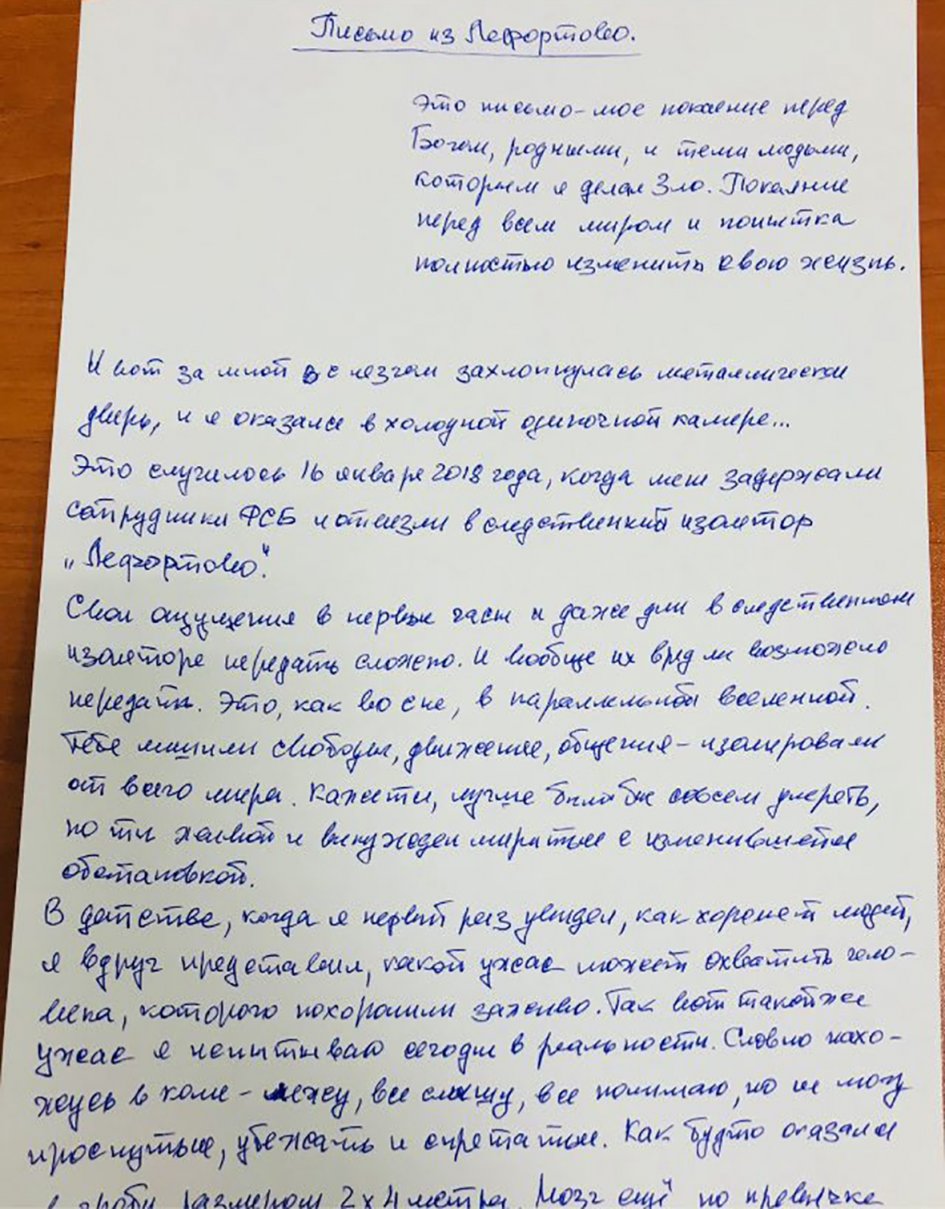 Письмо из Лефортово.
Это письмо-мое покаение перед
Богом, родными, и теми людьми,
которым я делал Зло. Покаяние
перед всем миром и попытка
полностью изменить свою жизнь.
И вот за мной с лязгом захлопнулась металлическая
дверь, и я оказался в холодной одиночной камере...
Это случилось 16 января 2018 года, когда меня задержали
сотрудники ФСБ и отвезли в следственный изолятор
„Лефортово".
Свои ощущения в первые часы и даже дни в следственном
изоляторе передать сложно. И вообще их вряд ли возможно
передать. Это, как во сне, в параллельной вселенной.
Тебя лишили свободы, движения, общения - изолировали
от всего мира. Кажется, лучше было бы совсем умереть,
но ты живой и вынужден мириться с изменившейся
обстановкой.
В детстве, когда я первый раз увидел, как хоронят людей,
я вдруг представил, какой ужас может охватить чело-
века, которого похоронили заживо. Так вот такой же
ужас я испытываю сегодня в реальности. Словно нахо-
жусь в коме - лежу, все слышу, все понимаю, но не могу
проснуться, убежать и спрятаться. Как будто оказался
в гробу размером 2х4 метра. Мозг ещё по привычке